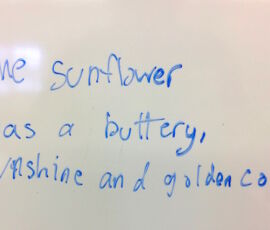 he sunflower
as a buttery,
nshine and golden co